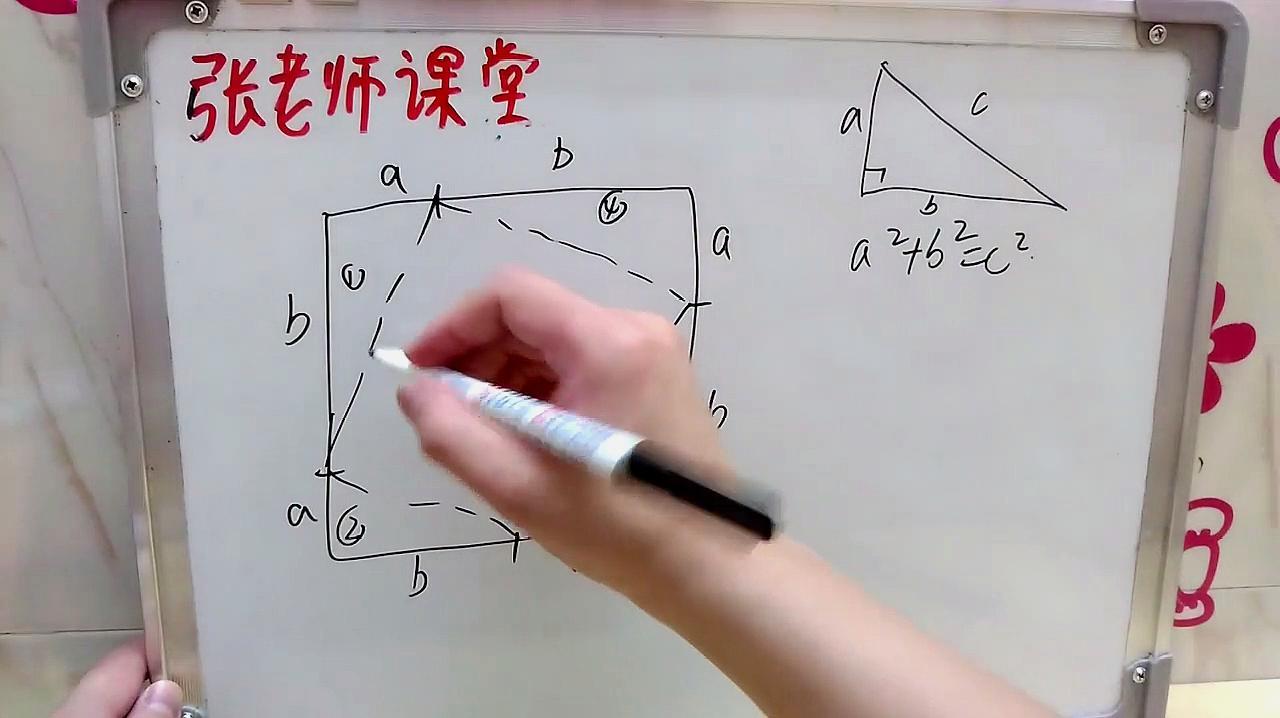 张老师课堂
a b
④
a
①
b
b
a
②
b
a
c
b
a²+b²=c²